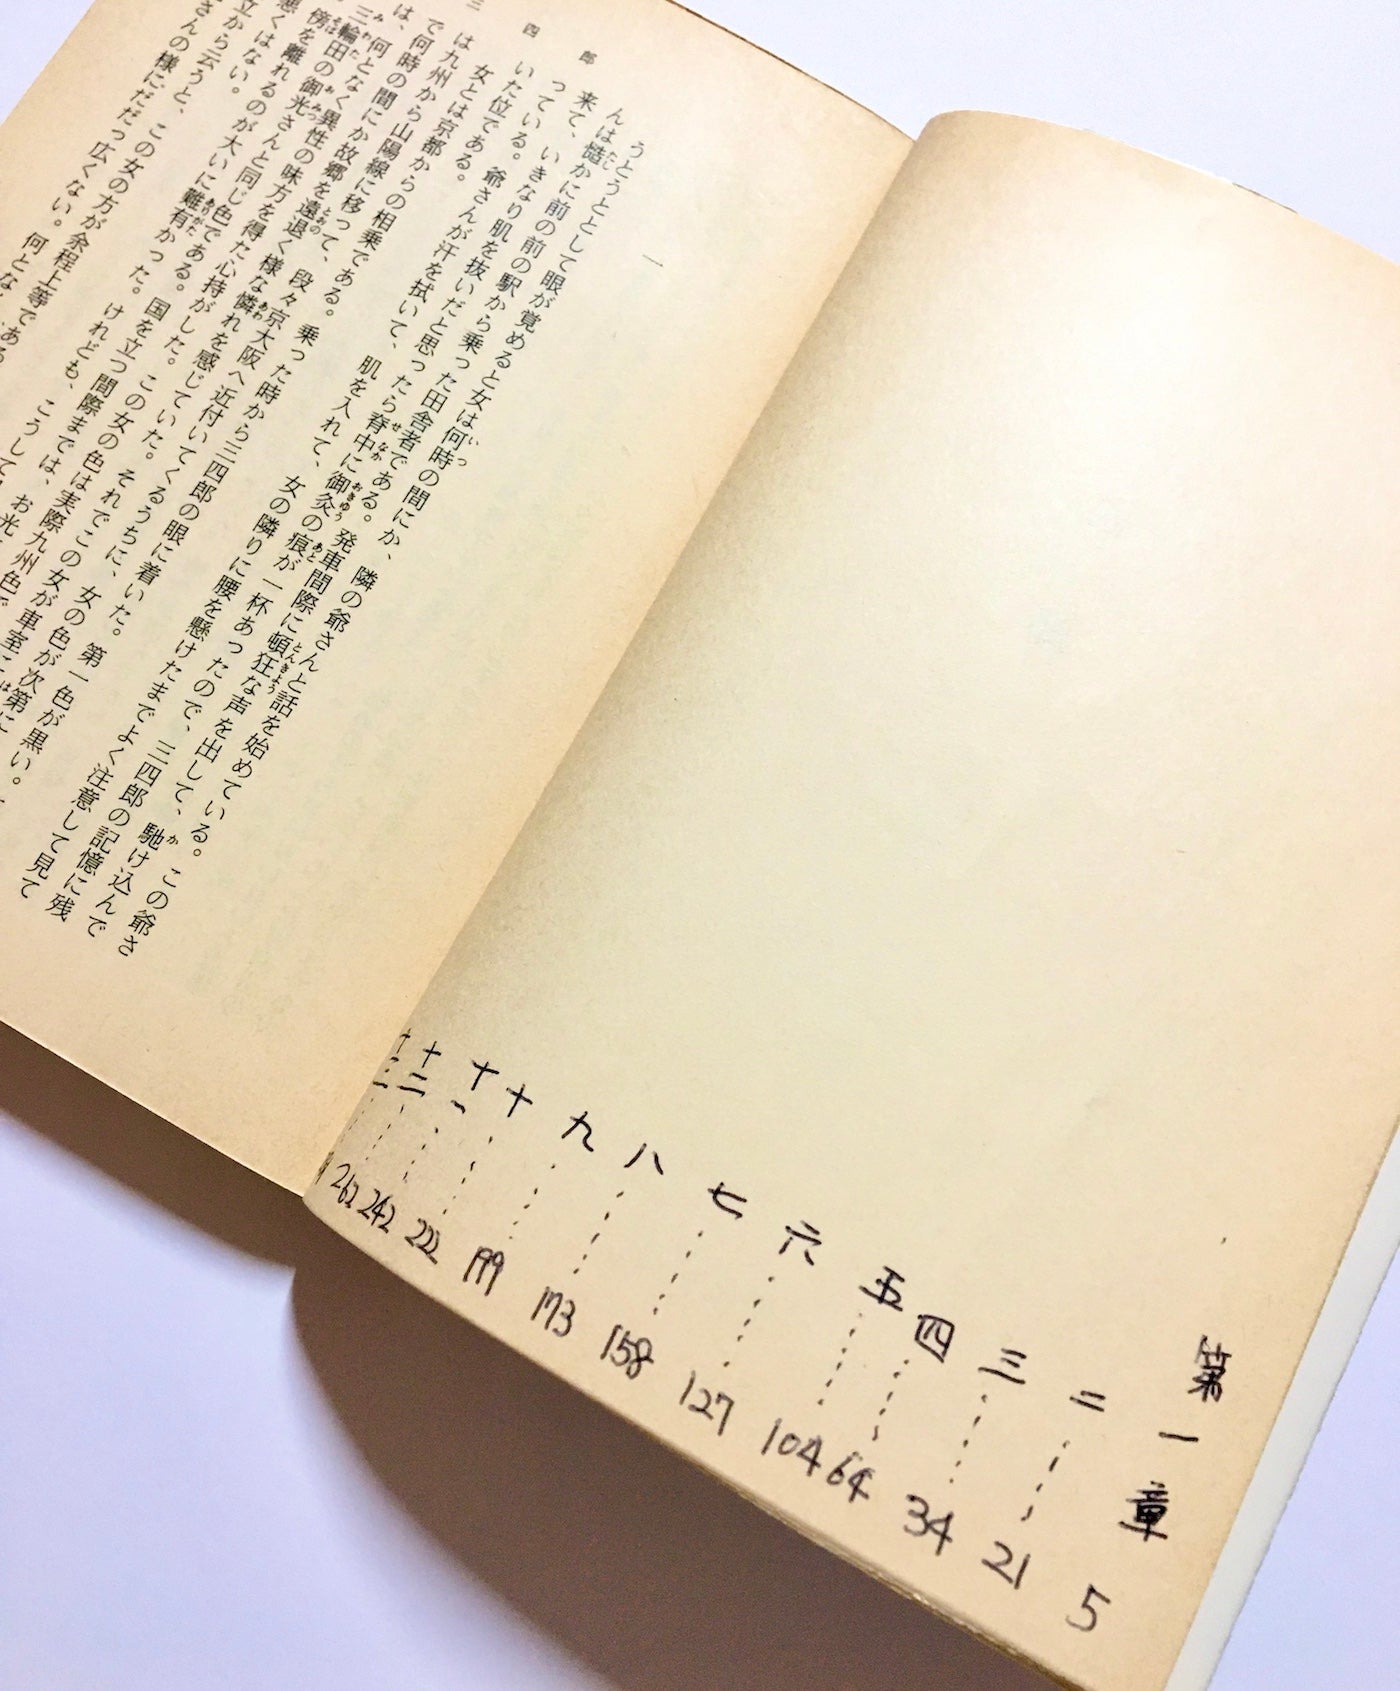 第一章 5
二……21
三……34
四……64
五……104
六……127
七……158
八……173
九……199
十……222
十一……242
十二……262
十三……
三四郎
一
うとうととして眼が覚めると女は何時の間にか、隣の爺さんと話を始めている。この爺さ
んは慥かに前の前の駅から乗った田舎者である。発車間際に頓狂な声を出して、馳け込んで
来て、いきなり肌を抜いだと思ったら脊中に御灸の痕が一杯あったので、三四郎の記憶に残
っている。爺さんが汗を拭いて、肌を入れて、女の隣りに腰を懸けたまでよく注意して見て
いた位である。
女とは京都からの相乗である。乗った時から三四郎の眼に着いた。第一色が黒い。
は九州から山陽線に移って、段々京大阪へ近付いてくるうちに、女の色が次第に
で何時の間にか故郷を遠退く様な憐れを感じていた。それでこの女が車室に
は、何となく異性の味方を得た心持がした。この女の色は実際九州色で
三輪田の御光さんと同じ色である。国を立つ間際までは、お光
傍を離れるのが大いに難有かった。けれども、こうして
悪くはない。
立から云うと、この女の方が余程上等である
さんの様にだだっ広くない。何となく